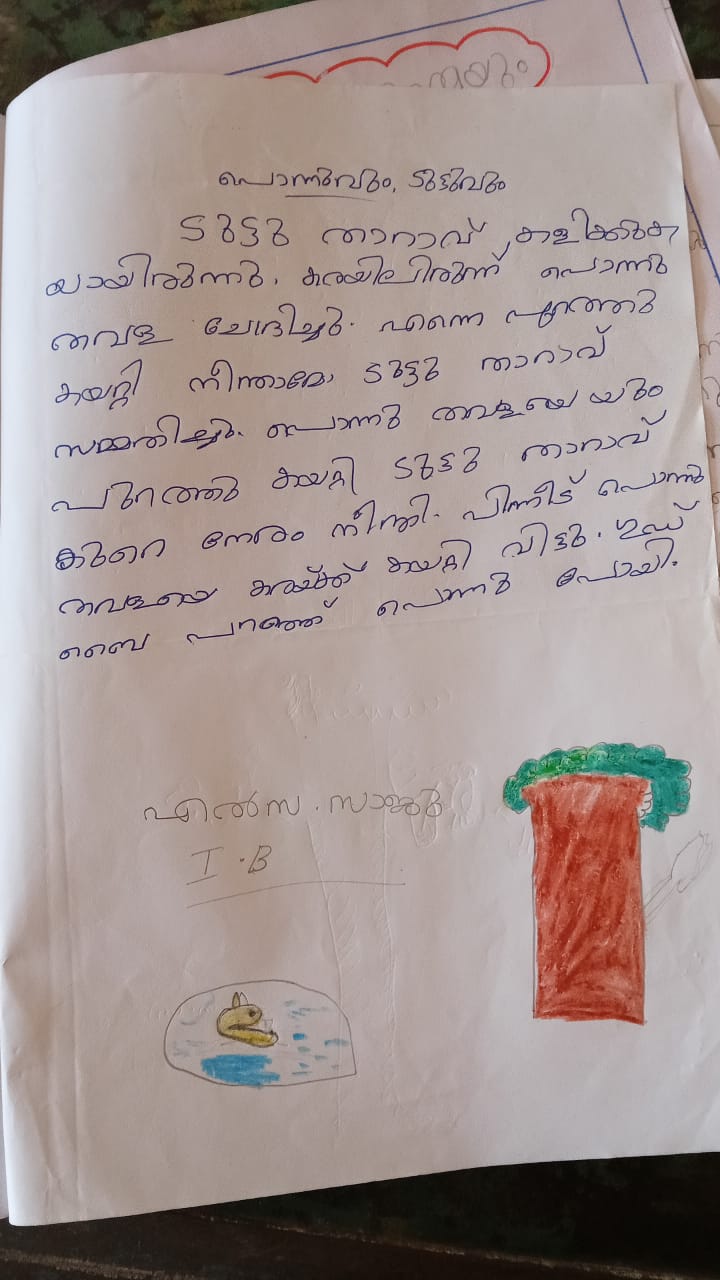 തയും
പൊന്നുവും, ടുട്ടുവും
ടുട്ടു താറാവ് കളിക്കുക
യായിരുന്നു. കരയിലിരുന്ന് പൊന്നു
തവള ചോദിച്ചു. എന്നെ പുറത്തു
കയറ്റി നീന്താമോ ടുട്ടു താറാവ്
സമ്മതിച്ചു. പൊന്നു തവളയെ യും
പുറത്തു കയറ്റി ടുട്ടു താറാവ്
കുറെ നേരം നീന്തി. പിന്നീട് പൊന്നു
തവളയെ കരയ്ക്ക് കയറ്റി വിട്ടു. ഗുഡ്
ബൈ പറഞ്ഞ് പൊന്നു പോയി.
എൽസ. സാജു
I.B